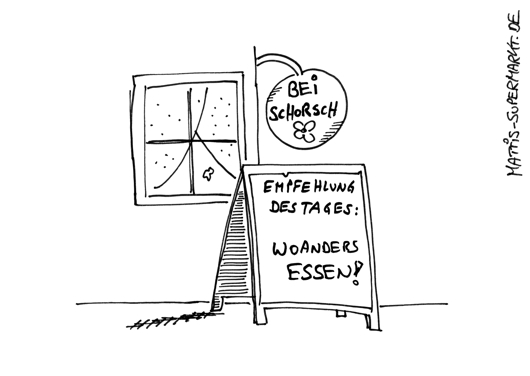 BEI
SCHORSCH
EMPFEHLUNG
DES TAGES:
WOANDERS
ESSEN!
MATTIS-SUPERMARKT.DE